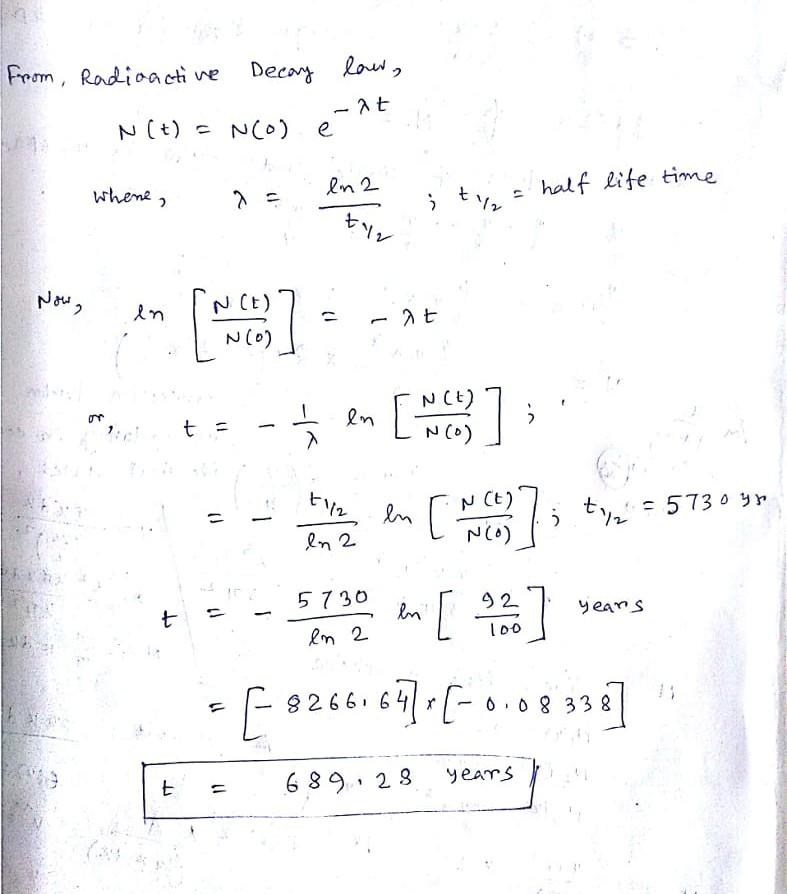 From, Radioactive Decay law,
N(t) = N(0) e^{-λt}
where, λ = ln 2 / t_{1/2} ; t_{1/2} = half life time
Now, ln [N(t) / N(0)] = - λt
or, t = - 1/λ ln [N(t) / N(0)] ;
= - t_{1/2} / ln 2 ln [N(t) / N(0)] ; t_{1/2} = 5730 yr
t = - 5730 / ln 2 ln [92 / 100] years
= [- 8266.64] x [- 0.08338]
t = 689.28 years